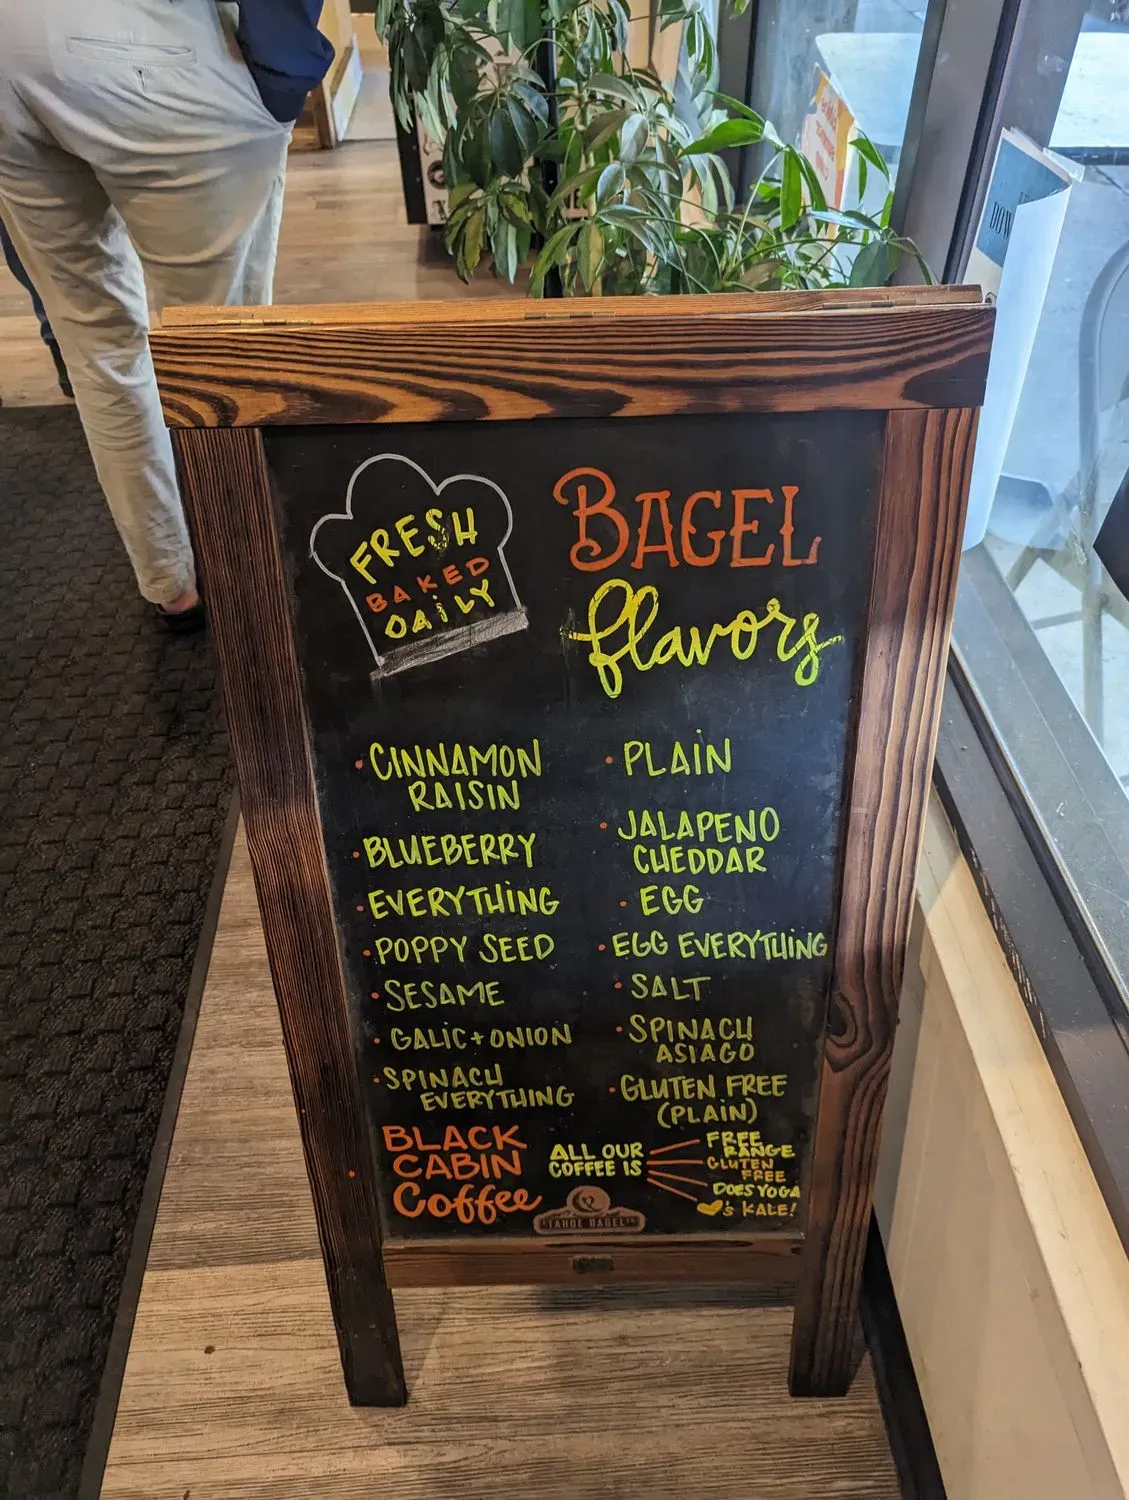 FRESH
BAKED
DAILY
BAGEL
flavors
• CINNAMON
RAISIN
• BLUEBERRY
• EVERYTHING
• POPPY SEED
• SESAME
• GALIC + ONION
• SPINACH
EVERYTHING
• PLAIN
• JALAPENO
CHEDDAR
• EGG
• EGG EVERYTHING
• SALT
• SPINACH
ASIAGO
• GLUTEN FREE
(PLAIN)
BLACK
CABIN
Coffee
ALL OUR
COFFEE IS
FREE
RANGE
GLUTEN
FREE
DOES YOGA
♥'S KALE!
TAHOE BAGEL